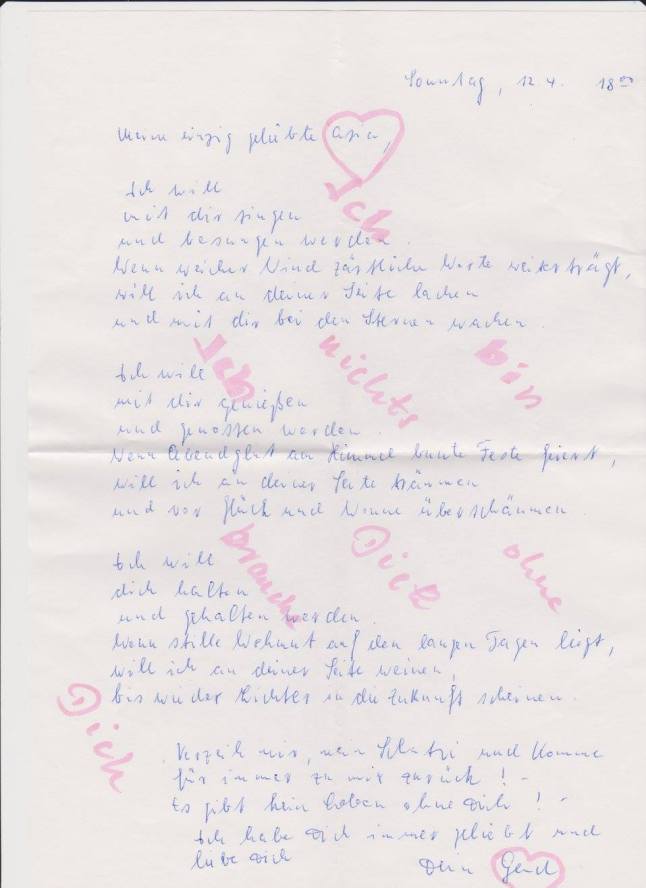 Sonntag, 12.4. 18 00
Meine einzig geliebte Asia,
Ich
Ich will
mit dir singen
und besungen werden.
Wenn weicher Wind zärtliche Worte weiterträgt,
will ich an deiner Seite lachen
und mit dir bei den Sternen wachen.
Ich nichts bin
Ich will
mit dir genießen
und genossen werden.
Wenn Abendglut am Himmel bunte Feste feiert,
will ich an deiner Seite träumen
und vor Glück und Wonne überschäumen.
brauche Dich ohne
Ich will
dich halten
und gehalten werden.
Wenn stille Wehmut auf den langen Tagen liegt,
will ich an deiner Seite weinen,
bis wieder Lichter in die Zukunft scheinen.
Dich
Verzeih mir, mein Schatzi und komme
für immer zu mir zurück! -
Es gibt kein Leben ohne Dich! -
Ich habe Dich immer geliebt und
liebe Dich
Dein Gerd